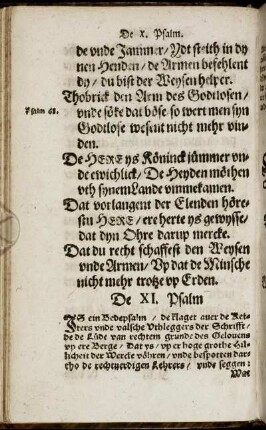 De X. Psalm.
de vnde Jammer / Ydt steith in dy
nen Henden / de Armen befehlent
dy / du bist der Weysen helper.
Thobrick den Arm des Godtlosen /
Psalm 68.
vnde söke dat böse so wert men syn
Godtlose wesent nicht mehr vin-
den.
De HERE ys Köninck jümmer vn-
de ewichlick / De Heyden möthen
vth synem Lande vmmekamen.
Dat vorlangent der Elenden höre-
stu HERE / ere herte ys gewysse /
dat dyn Ohre darup mercke.
Dat du recht schaffest den Weysen
vnde Armen / Vp dat de Minsche
nicht mehr trotze vp Erden.
De XI. Psalm
YS ein Bedepsalm / de klaget auer de Ket-
ters vnde valsche Vthleggers der Schrifft /
de de Lüde van rechten grunde des Gelouens
vp ere Berge / Dat ys / vp er hoge grothe Hil-
licheit der Wercke vöhren / vnde bespotten dar-
tho de rechtuerdigen Lehrers / vnde seggen:
Wat